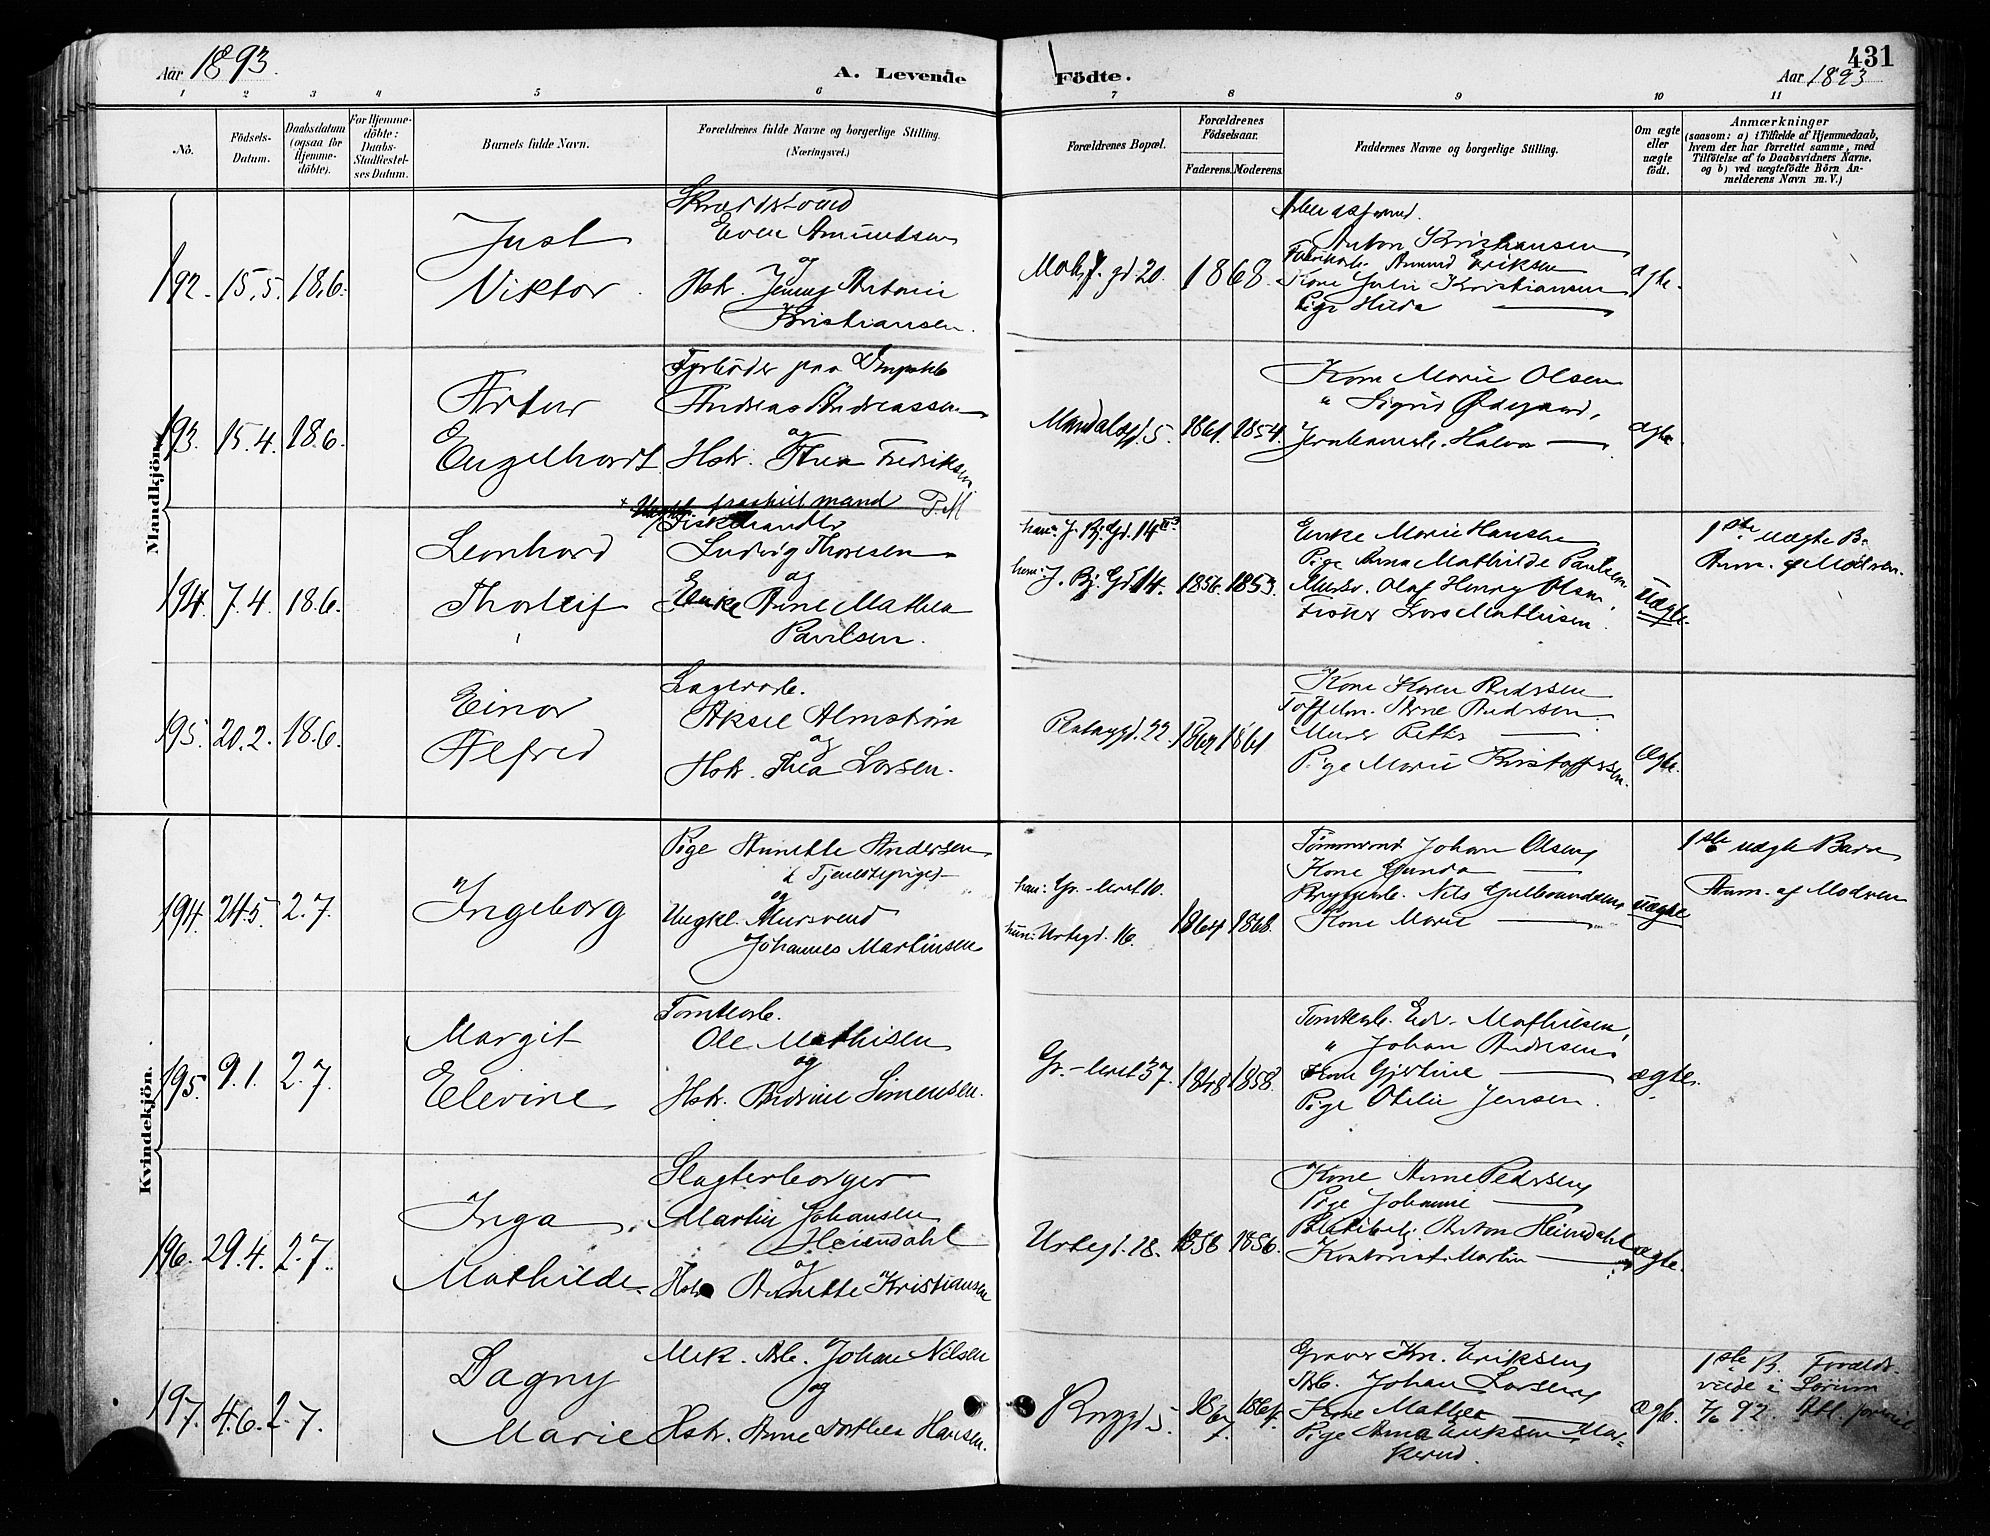 Aar 1893.
A. Levende
Födte.
431
Aar 1893
1 2 3 4 5 6 7 8 9 10 11
No.
Födsels-
Datum.
Daabsdatum
(ogsaa for
Hjemme-
döbte).
For Hjemme-
döbte:
Daabs-
Stadfæstel-
ses Datum.
Barnets fulde Navn.
Forældrenes fulde Navne og borgerlige Stilling.
(Næringsvei.)
Forældrenes Bopæl.
Forældrenes
Födselsaar.
Faderens.
Moderens.
Faddernes Navne og borgerlige Stilling.
Om ægte
eller
uægte
födt.
Anmærkninger
(saasom: a) i Tilfælde af Hjemmedaab,
hvem der har forrettet samme, med
Tilföielse af to Daabsvidners Navne,
og b) ved uægtefödte Börn An-
melderens Navn m. V.)
Mandkjön.
192. 15.5. 18.6.
Just
Viktor
Even Amundsen
og
Hstr. Jenny Antonie
Kristiansen.
gd 20.
1868.
Anton Kristiansen
Amund Eriksen
Kone Julie Kristiansen
Pige Hilda —
ægte.
193. 15.4. 18.6.
Artur
Engelhardt
Fyrbøder paa
Andreas Andreassen
og
Hstr. Thea Fredriksen
Mandalsgd. 5.
1861. 1854.
Kone Marie Olsen
" Sigrid Ødegaard,
Halvor —
ægte.
194. 7.4. 18.6.
Leonhard
Thorleif
fraskilt mand
Fiskehandler
Ludvig Thoresen
og
Enke Anne Mathea
Paulsen.
han: J. Bj. Gd. 14
hun: J. Bj. Gd 14.
1856. 1853.
Enke Marie Hansen
Pige Anna Mathilde Paulsen
Mursv. Olaf Henry Olsen,
Fisker Lars Mathisen.
Uægte.
1ste uægte B.
Anm. af Modren.
195. 20.2. 18.6.
Einar
Alfred
Lagerarb.
Aksel Almstrøm
og
Hstr. Thea Larsen.
Platougd. 22.
1861
Kone Karen Andersen
Arne Andersen.
Murer Petter —
Pige Marie Kristoffersen.
Ægte.
Kvindekjön.
194. 24.5 2.7.
Ingeborg
Pige Annette Andersen
Tjenestepige
og
Ungkl. Mursvend
Johannes Martinsen
han: Gr.-leret 10.
hun: Urtegd. 16.
1864 1868.
Tømmermd Johan Olsen,
Kone Gunda —
Bryggearb. Nils Gulbrandsen,
Kone Marie —
uægte
1ste uægte Barn
Anm. af Modren
195. 9.1. 2.7.
Margit
Elevine
Tomtearb.
Ole Mathisen
og
Hstr. Andrine Simensen.
Gr.-leret 37.
1848 1858.
Tomtearb. Edv. Mathisen,
" Johan Andresen.
Kone Gjertine —
Pige Otilie Jensen.
ægte.
196. 29.4. 2.7.
Inga
Mathilde
Slagterborger
Martin Johansen
Heimdahl
og
Hstr. Annette Kristiansen
Urtegd. 28.
1856 1856.
Kone Anne Pedersen,
Pige Johanne —
Anton Heimdahl
Kontorist Martin —
ægte.
197. 4.6. 2.7.
Dagny
Marie
Mek. Arb. Johan Nilsen
og
Hstr. Anne Dorthea Hansen.
5.
1867 1864.
Graver Kr. Eriksen,
Arb. Johan Larsen,
Kone Mathea —
Pige Anna Eriksen Mar-
kerud.
ægte
1ste B. Foreldr.
viede i Sørum
92.